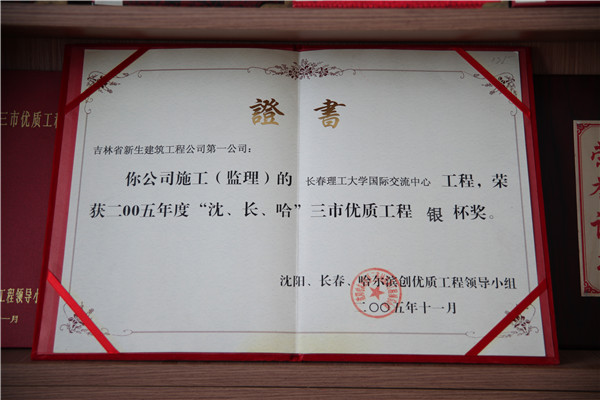 證書
吉林省新生建筑工程公司第一公司:
你公司施工(监理)的 长春理工大学国际交流中心 工程,荣
获二00五年度“沈、长、哈”三市优质工程 银 杯奖。
沈阳、长春、哈尔滨创优质工程领导小组
二〇〇五年十一月
三市优质工程
工程领导小
一月